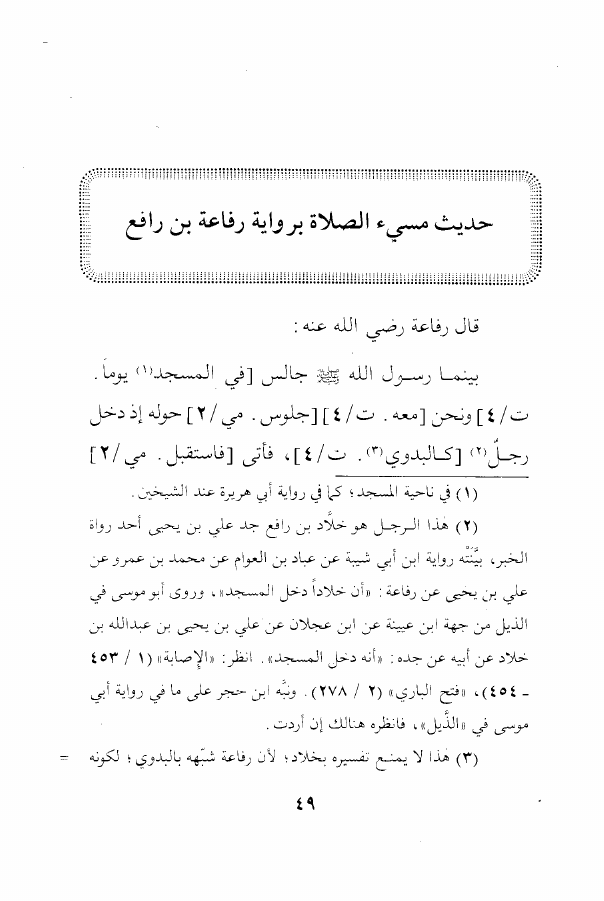 حديث مسيء الصلاة برواية رفاعة بن رافع
قال رفاعة رضي الله عنه :
بينمـا رسـول الله ﷺ جالس [في المسجد(١) يوماً .
ت/٤] ونحن [معه . ت/٤] [جلوس . مي/٢] حوله إذ دخل
رجـلٌ(٢) [كـالبدوي(٣). ت/٤]، فأتى [فاستقبل . مي/٢]
(١) في ناحية المسجد؛ كما في رواية أبي هريرة عند الشيخين .
(٢) هٰذا الـرجـل هو خلَّاد بن رافع جد علي بن يحيى أحد رواة
الخبر، بيَّنَتْه رواية ابن أبي شيبة عن عباد بن العوام عن محمد بن عمرو عن
علي بن يحيى عن رفاعة : «أن خلاداً دخل المسجد»، وروى أبو موسى في
الذيل من جهة ابن عيينة عن ابن عجلان عن علي بن يحيى بن عبدالله بن
خلاد عن أبيه عن جده : «أنه دخل المسجد». انظر: «الإصابة» (١ / ٤٥٣
ـ ٤٥٤)، «فتح الباري» (٢ / ٢٧٨). ونبَّه ابن حجر على ما في رواية أبي
موسى في «الذَّيل»، فانظره هنالك إن أردت.
(٣) هٰذا لا يمنـع تفسيره بخلاد؛ لأن رفاعة شبَّهه بالبدوي؛ لكونه =
٤٩